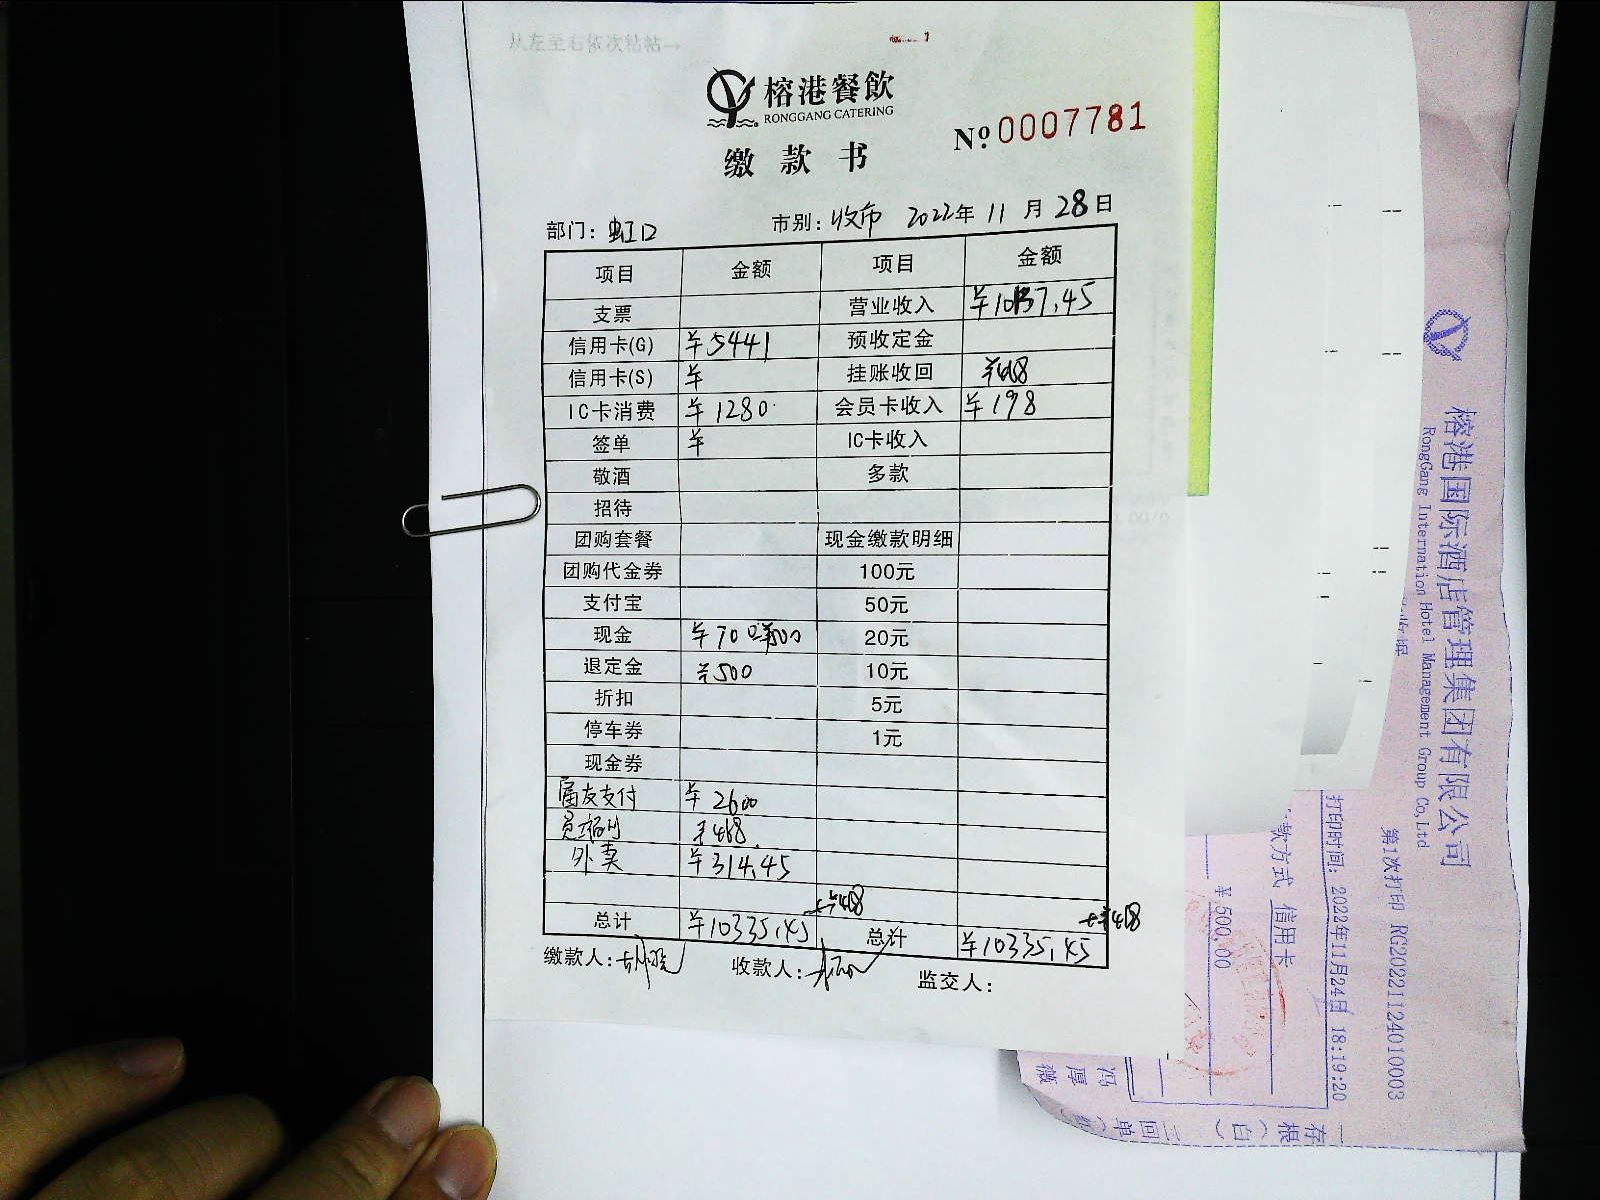 从左至右依次粘帖→
榕港餐飲
RONGGANG CATERING
缴款书
№ 0007781
部门：虹口 市别：收市 2022年11月28日
项目 金额 项目 金额
支票 营业收入 ¥10137.45
信用卡(G) ¥5441 预收定金
信用卡(S) ¥ 挂账收回 ¥468
IC卡消费 ¥1280 会员卡收入 ¥198
签单 ¥ IC卡收入
敬酒 多款
招待
团购套餐 现金缴款明细
团购代金券 100元
支付宝 50元
现金 ¥700 20元
退定金 ¥500 10元
折扣 5元
停车券 1元
现金券
支付 ¥2600
¥468
外卖 ¥314.45
+¥468 +¥468
总计 ¥10335.45 总计 ¥10335.45
缴款人： 收款人： 监交人：
榕港国际酒店管理集团有限公司
RongGang International Hotel Management Group Co,Ltd
第1次打印 RG20221124010003
打印时间：2022年11月24日 18:19:20
款方式 信用卡
¥500.00
冯厚薇
一存根（白）
二回单